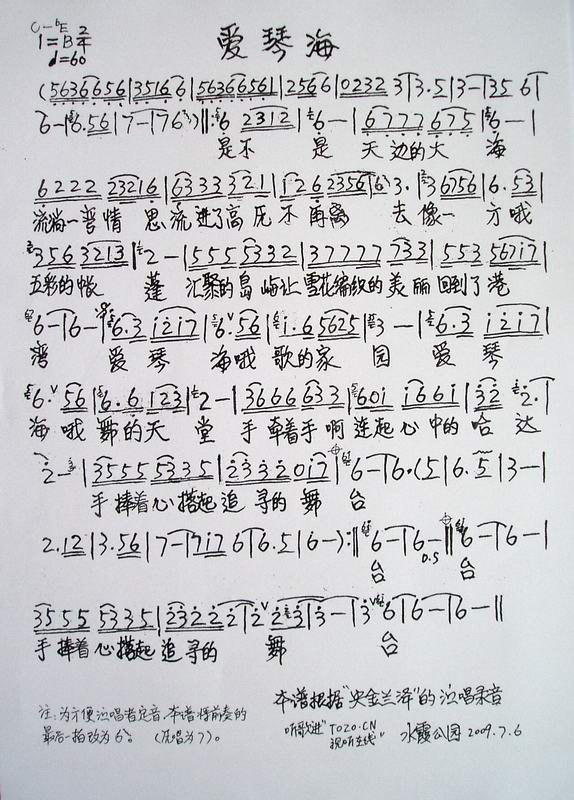 爱琴海
C-bE
1=B 2/4
♩=60
(5636656|35166|56366561|2566|0232 3|3.5|3-|35 6|
6-|6.56|7-|76)‖:6 2312|6-|6777 675|6-|
是不 是 天边的大 海
6222 23216|6333 321|126 2356|6 3.|36756|6.53|
流淌一湾情 思流进了高原不再离 去像一方哦
3563213|2-|5555332|37777 733|553 56717|
五彩的帐 蓬 汇聚的岛屿让雪花编织的美丽回到了港
6-|6-|6.3 1217|6.56|1.65625|3-|6.3 1217|
湾 爱琴 海哦歌的家 园 爱琴
6.56|6.6 123|2-|3666 633|601 1661|32 2.|
海哦舞的天 堂 手牵着手啊连起心中的哈 达
2-|35555335|2332017|6-|6.(5|6.5|3-|
手捧着心搭起追寻的舞 台
2.12|3.56|7-|717 6|6.5|6-):‖6-|6-‖6-|6-|
0.5
台 台
3555 5335|23222|2 23|3-|36|6-|6-‖
手捧着心搭起追寻的 舞 台
本谱根据"央金兰泽"的演唱录音
注:为方便演唱者定音,本谱将前奏的
最后一拍改为6。(原唱为7)。
听歌进"TOZO.CN
视听在线"
水霞公园 2009.7.6